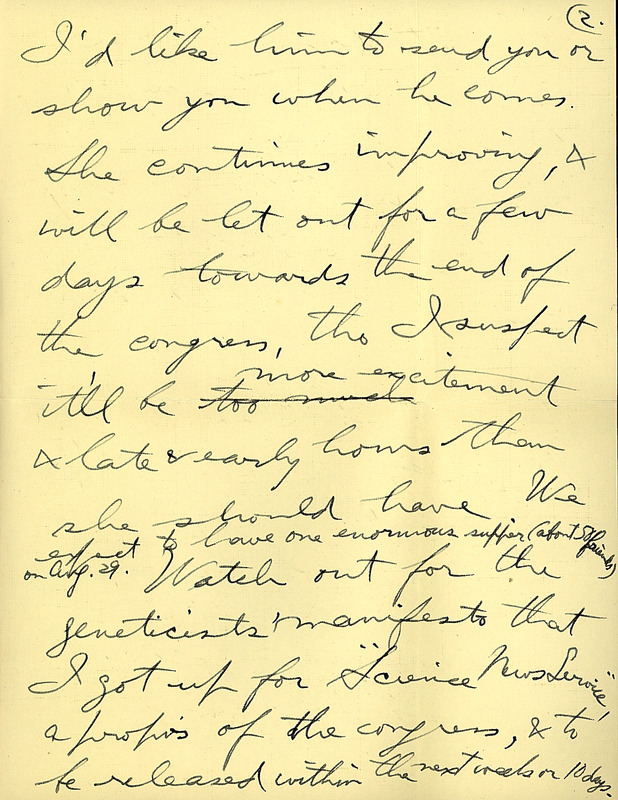 (2.
I'd like him to send you or
show you when he comes.
She continues improving, &
will be let out for a few
days towards the end of
the congress, tho I suspect
it'll be too much more excitement
& late & early hours than
she should have We
expect to have one enormous supper (about friends)
on Aug. 29. Watch out for the
geneticists' manifesto that
I got up for "Science News Service",
a propos of the congress, & to
be released within the next week or 10 days.